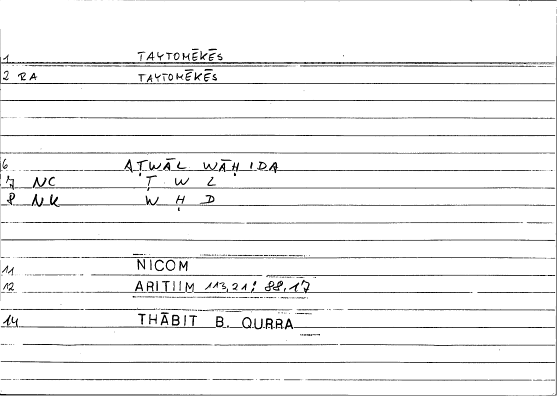 1 TAYTOMĒKĒS
2 RA TAYTOMĒKĒS
6 AṬWĀL WĀḤIDA
7 NC Ṭ W L
8 NK W Ḥ D
11 NICOM
12 ARITIIM 113,21; 88,17
14 THĀBIT B. QURRA